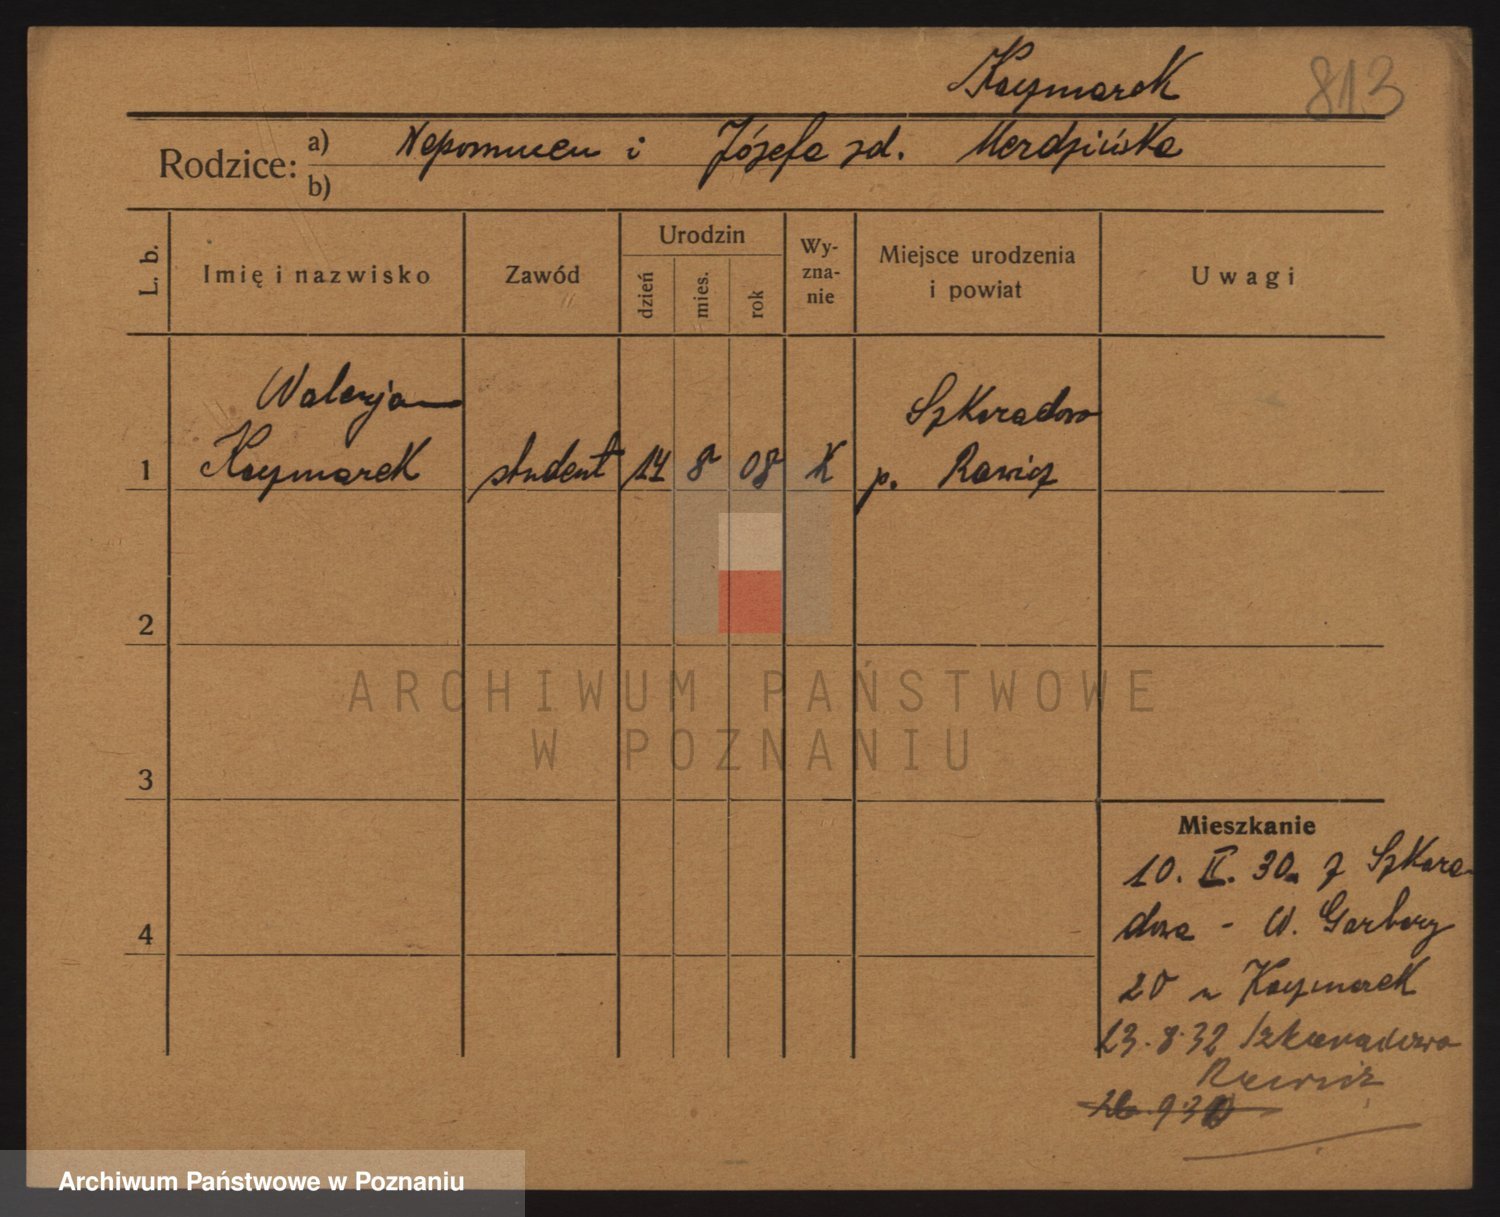 Kaczmarek 813
Rodzice: a) Nepomucen i Józefa zd.
b)
L. b.
Imię i nazwisko
Zawód
Urodzin
dzień
mies.
rok
Wy-
zna-
nie
Miejsce urodzenia
i powiat
Uwagi
Walerjan
Szkaradowo
1 Kaczmarek student 14 8 08 K p. Rawicz
2
3
4
ARCHIWUM PAŃSTWOWE
W POZNANIU
Mieszkanie
10. II. 30. z Szkara-
dowa - W. Garbary
20 u Kaczmarek
23.8.32 Szkaradowo
Rawicz
Archiwum Państwowe w Poznaniu